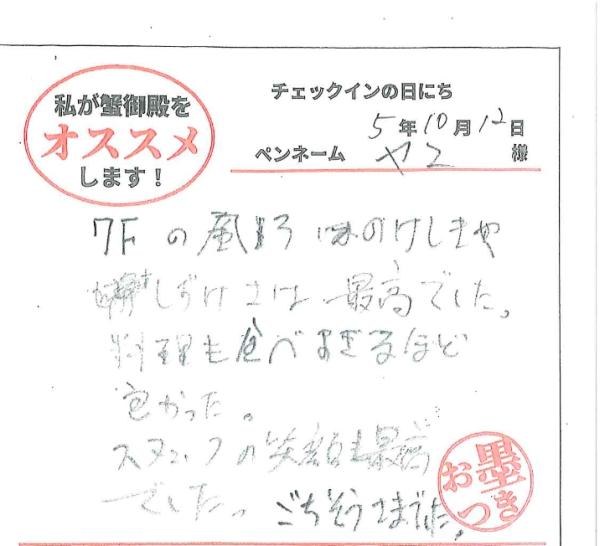 私が蟹御殿を
オススメ
します！
チェックインの日にち
5年10月12日
ペンネーム ヤエ 様
7Fの風呂 海のけしきや
しずけさは最高でした。
料理も食べすぎるほど
良かった。
スタッフの笑顔も最高
でした。ごちそうさまでした。
お墨つき